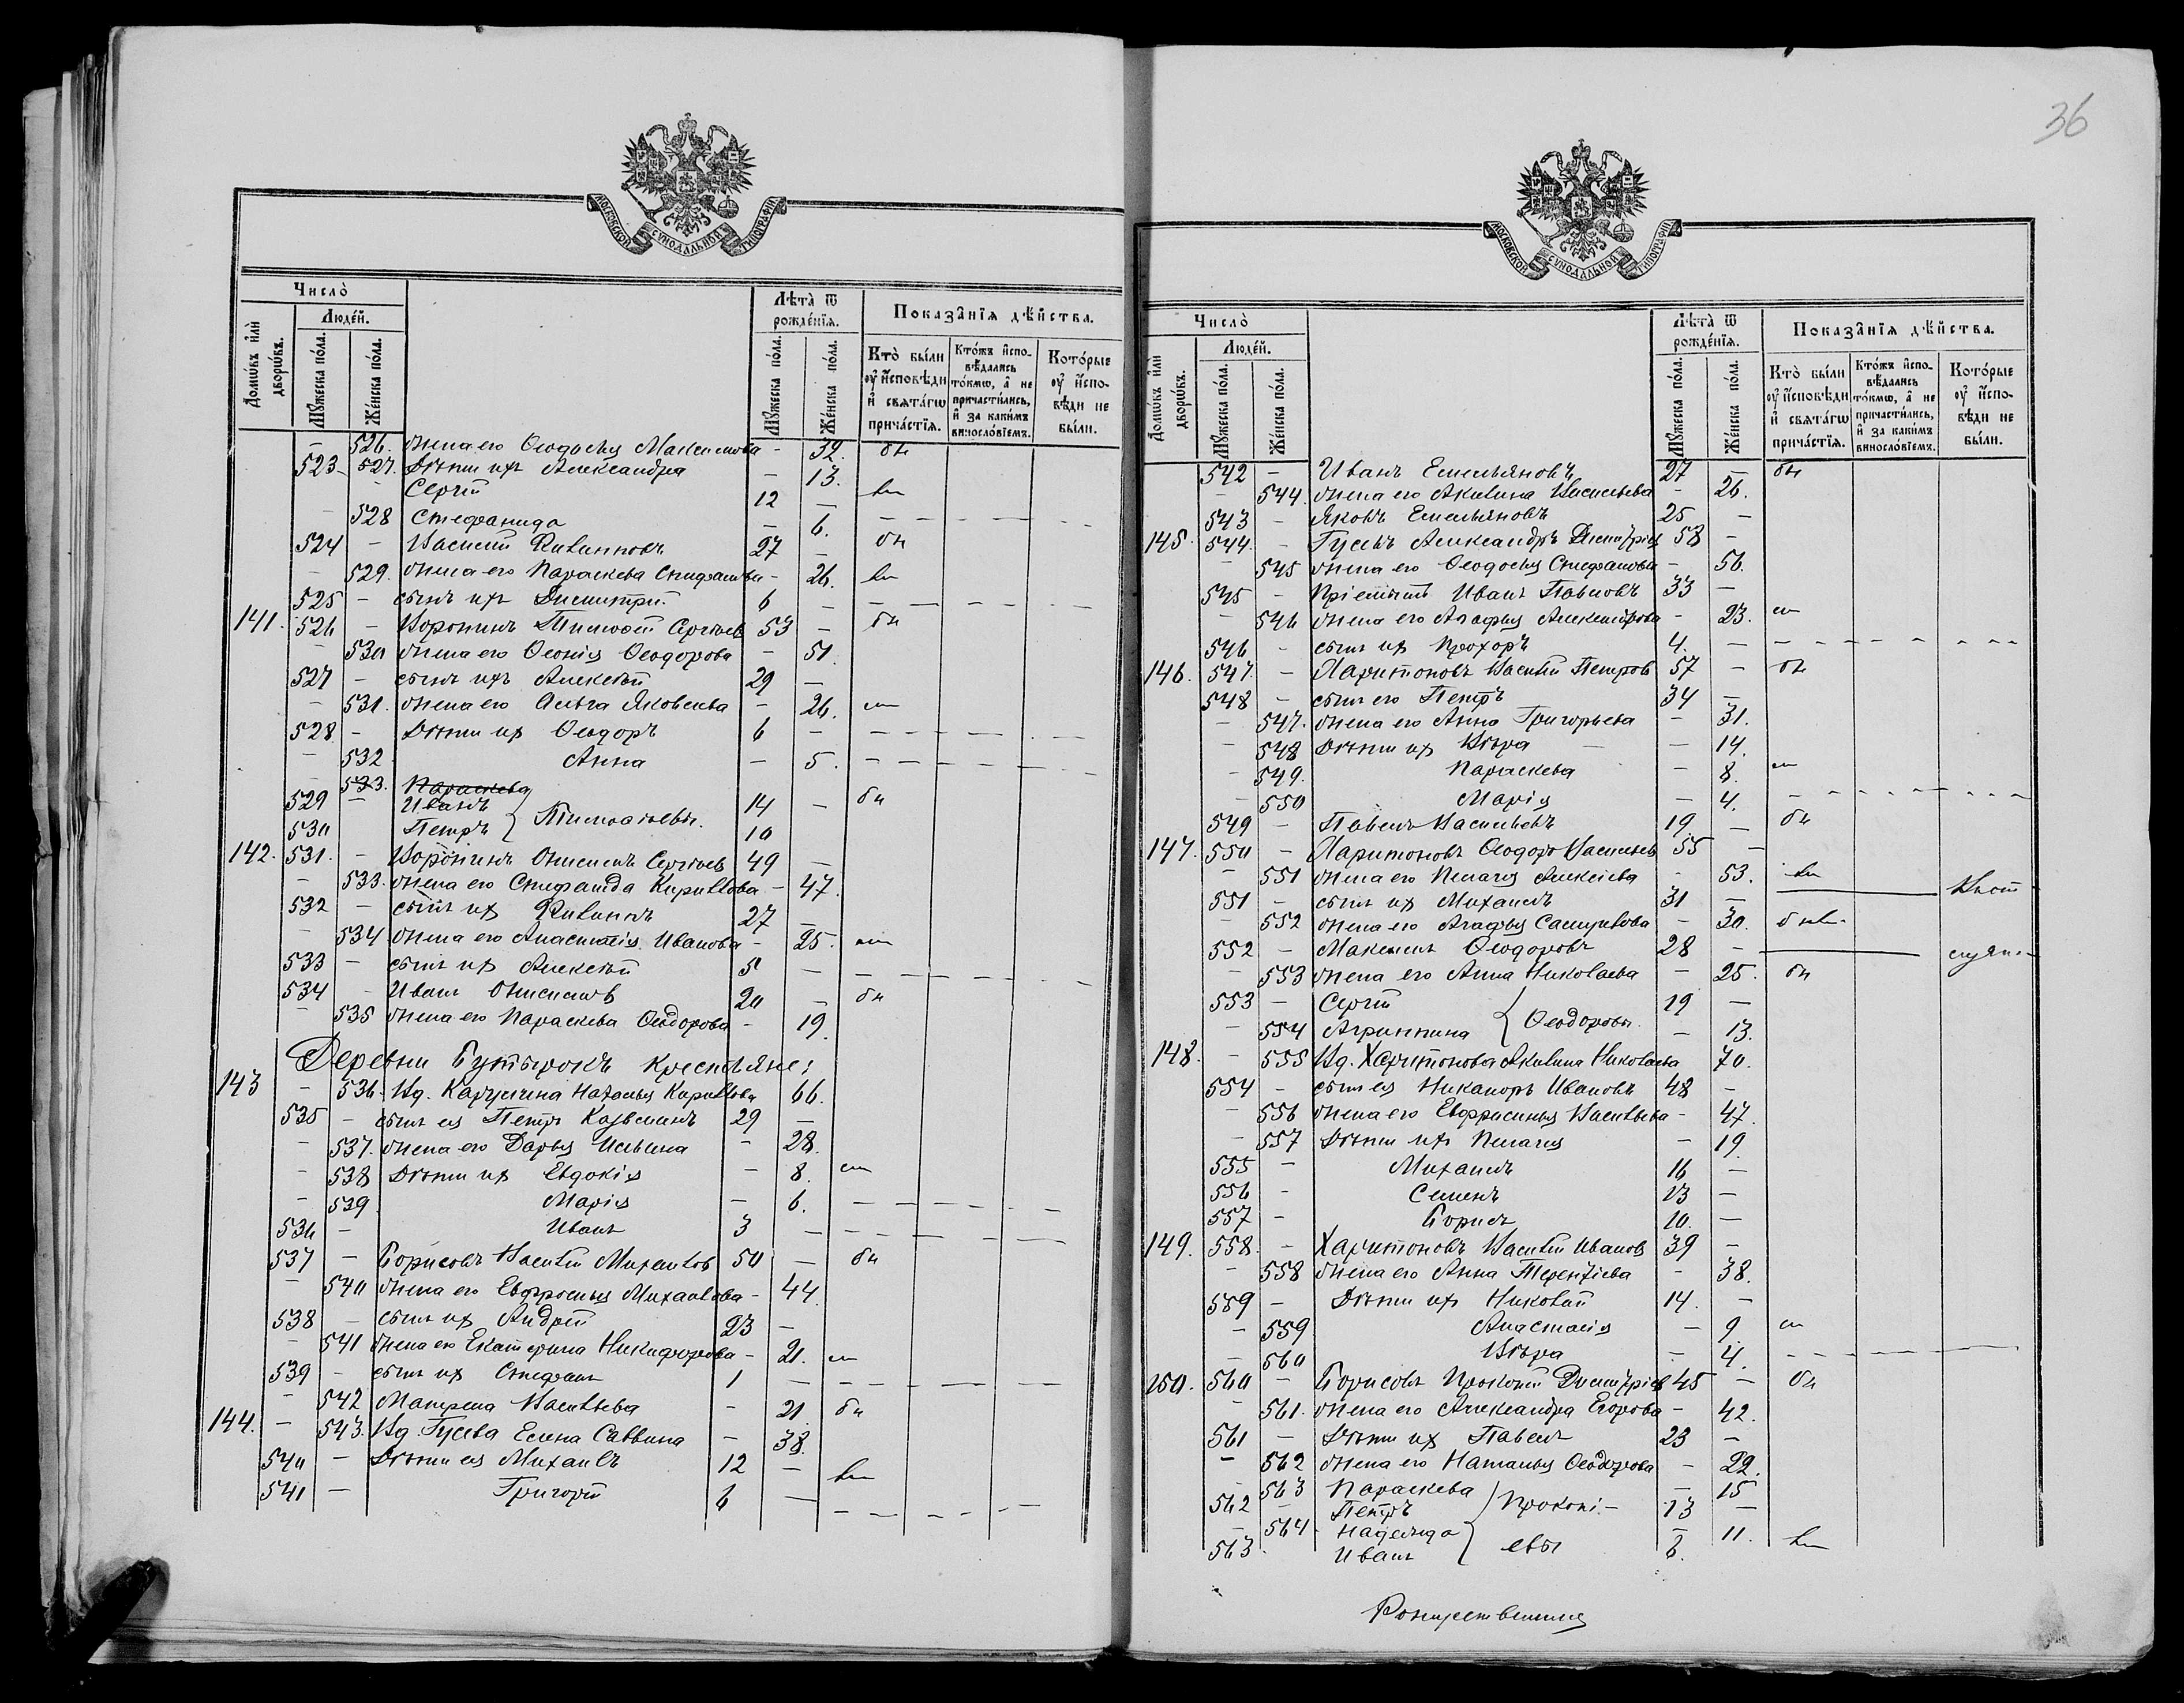 36
МОСКОВСКОЙ СѴНОДАЛЬНОЙ ТИПОГРАФІИ
Число̀
Домѡ́въ и҆лѝ дворѡ́въ.
Люде́й.
Мꙋ́жеска по́ла.
Же́нска по́ла.
Лѣ́та ѿ рожде́нїѧ.
Мꙋ́жеска по́ла.
Же́нска по́ла.
Показа̑нїѧ дѣ́йства.
Кто̀ бы́ли ᲂу҆ и҆́сповѣди и҆ свѧта́гѡ прича́стїѧ.
Кто́жъ и҆сповѣ́дались то́кмѡ, а҆ не причасти́лись, и҆ за каки́мъ винослов́їемъ.
Кото́рые ᲂу҆ и҆́сповѣди не бы́ли.
– 526. жена его Ѳеодосія Максимова – 32. бы
523 – 527. Дѣти ихъ Александра – 13.
Сергій 12 –
– 528 Стефанида – 6. – – – –
524 – Василій Филипповъ 27 – бы
– 529. жена его Параскева Стефанова – 26.
525 – сынъ ихъ Димитрій 6 – – – –
141. 526 – Воронинъ Тимоѳей Сергѣевъ 53 – бы
– 530 жена его Ѳеонія Ѳеодорова – 51.
527 – сынъ ихъ Алексѣй 29 –
– 531. жена его Ольга Яковлева – 26.
528 – Дѣти их Ѳеодоръ 6 – – – –
– 532 Анна – 5. – – – –
– 533. Параскева
529 – Иванъ } Тимоѳеевы. 14 – бы
530 Петръ 10
142. 531. – Воронинъ Онисимъ Сергѣевъ 49 –
– 533. жена его Стефанида Кириллова – 47.
532 – сынъ их Филиппъ 27 –
– 534 жена его Анастасія Иванова – 25.
533 – сынъ их Алексѣй 5 – – – –
534 – Иванъ Онисимовъ 20 – бы
– 535 жена его Параскева Ѳеодорова – 19.
Деревни Бутырокъ крестьяне:
143 – 536. Вд. Наталья Кириллова 66.
535 – сынъ ея Петръ 29 –
– 537. жена его Дарья Ильина – 28.
– 538 Дѣти их Евдокія – 8.
– 539 Марія – 6. – – – –
536 – Иванъ 3 – – – –
537 – Борисовъ Василій Михаиловъ 50 – бы
– 540 жена его Евфросинія Михаилова – 44.
538 – сынъ их Андрей 23 –
– 541 жена его Екатерина Никифорова – 21.
539 – сынъ их Стефанъ 1 – – – –
– 542 Матрена Васильева – 21. бы
144. – 543. Вд. Гусева Елена Саввина – 38.
540 – Дѣти ея Михаилъ 12 –
541 – Григорій 6 – – – –
МОСКОВСКОЙ СѴНОДАЛЬНОЙ ТИПОГРАФІИ
Число̀
Домѡ́въ и҆лѝ дворѡ́въ.
Люде́й.
Мꙋ́жеска по́ла.
Же́нска по́ла.
Лѣ́та ѿ рожде́нїѧ.
Мꙋ́жеска по́ла.
Же́нска по́ла.
Показа̑нїѧ дѣ́йства.
Кто̀ бы́ли ᲂу҆ и҆́сповѣди и҆ свѧта́гѡ прича́стїѧ.
Кто́жъ и҆сповѣ́дались то́кмѡ, а҆ не причасти́лись, и҆ за каки́мъ винослов́їемъ.
Кото́рые ᲂу҆ и҆́сповѣди не бы́ли.
542 – Иванъ Емельяновъ 27 – бы
– 544. жена его Акилина Васильева – 26.
543 – Яковъ Емельяновъ 25 –
145. 544 – Гусевъ Александръ Димитріев 58 –
– 545 жена его Ѳеодосія Стефанова – 56.
545 – Пріемышъ Иванъ Павловъ 33 –
– 546 жена его Агафья Александрова – 23.
546 – сынъ их Прохоръ 4. – – – –
146. 547. – Харитоновъ Василій Петровъ 57 – бы
548 – сынъ его Петръ 34 –
– 547. жена его Анна Григорьева – 31.
– 548 Дѣти их Вѣра – 14.
– 549. Параскева – 8.
– 550 Марія – 4. – – – –
549 – Павелъ Васильевъ 19 – бы
147. 550 – Харитоновъ Ѳеодоръ Васильев 55 –
– 551 жена его Пелагія Алексѣева – 53.
551 – сынъ их Михаилъ 31 –
– 552 жена его Агафья Самуилова – 30.
552 – Максимъ Ѳеодоровъ 28 –
– 553 жена его Анна Николаева – 25. бы
553 – Сергій } Ѳеодоровы. 19 –
– 554 Агриппина – 13.
148. – 555 Вд. Харитонова Акилина Николаева 70.
554 – сынъ ея Никаноръ Ивановъ 48 –
– 556 жена его Евфросинья Васильева – 47.
– 557 Дѣти ихъ Пелагія – 19.
555 – Михаилъ 16 –
556 – Семенъ 13 –
557 – Борисъ 10. –
149. 558. – Харитоновъ Василій Иванов 39 –
– 558 жена его Анна Терентіева – 38.
559 – Дѣти ихъ Николай 14. –
– 559 Анастасія – 9.
– 560 Вѣра – 4. – – – –
150. 560 – Борисовъ Прокопій Димитріев 45 – бы
– 561. жена его Александра Егорова – 42.
561 – Дѣти их Павелъ 23 –
– 562 жена его Наталья Ѳеодорова – 22.
– 563 Параскева – 15
562 – Петръ } Прокопі– 13 –
– 564 Надежда – 11.
563. Иванъ } евы 6.